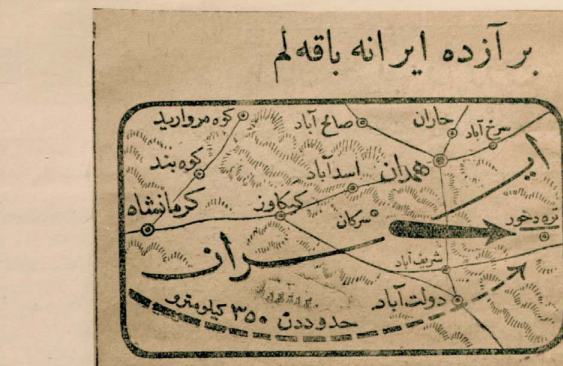 بر آزده ایرانه باقه لم
کوه مروارید
صالح آباد
حاران
سرخ آباد
کوه بند
اسدآباد
همدان
ایـ
کرمانشاه
کنکاور
سرکان
ـران
شریف آباد
دولت آباد
حدوددن ۳۵۰ کیلومترو